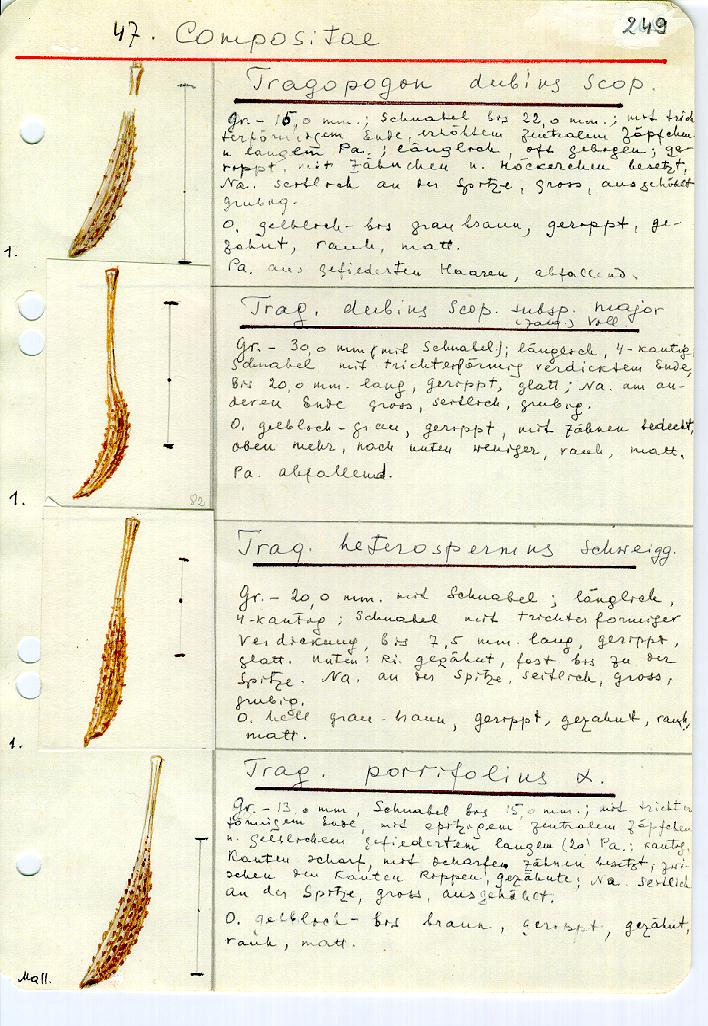 47. Compositae
249
Tragopogon dubius Scop.
Gr.- 15,0 mm.; Schnabel bis 22,0 mm.; mit trich
terförmigem Ende, erhöhtem zentralem Zäpfchen
u. langem Pa.; länglich, oft gebogen; ge-
rippt, mit Zähnchen u. Höckerchen besetzt,
Na. seitlich an der Spitze, gross, ausgehöhlt
grubig.
O. gelblich- bis grau braun, gerippt, ge-
zähnt, rauh, matt.
Pa. aus gefiederten Haaren, abfallend.
1.
Trag. dubius Scop. subsp. major
(Jacq.) Voll.
Gr.- 30,0 mm (mit Schnabel); länglich, 4-kantig,
Schnabel mit trichterförmig verdicktem Ende,
bis 20,0 mm. lang, gerippt, glatt; Na. am an-
deren Ende gross, seitlich, grubig.
O. gelblich-grau, gerippt, mit Zähnen bedeckt,
oben mehr, nach unten weniger, rauh, matt.
Pa. abfallend.
1.
82
Trag. heterospermus Schweigg.
Gr.- 20,0 mm. mit Schnabel; länglich,
4-kantig; Schnabel mit trichterförmiger
Verdickung, bis 7,5 mm. lang, gerippt,
glatt. Unten: Ri. gezähnt, fast bis zu der
Spitze. Na. an der Spitze, seitlich, gross,
grubig.
O. hell grau-braun, gerippt, gezähnt, rauh,
matt.
1.
Trag. porrifolius L.
Gr.- 13,0 mm, Schnabel bis 15,0 mm.; mit trichter
förmigem Ende, mit spitzigem zentralem Zäpfchen
u. gelblichem gefiedertem langem (20) Pa.; kantig,
Kanten scharf, mit scharfen Zähnen besetzt; zwi-
schen den Kanten Rippen, gezähnte; Na. seitlich
an der Spitze, gross, ausgehöhlt.
O. gelblich- bis braun, gerippt, gezähnt,
rauh, matt.
Mall.